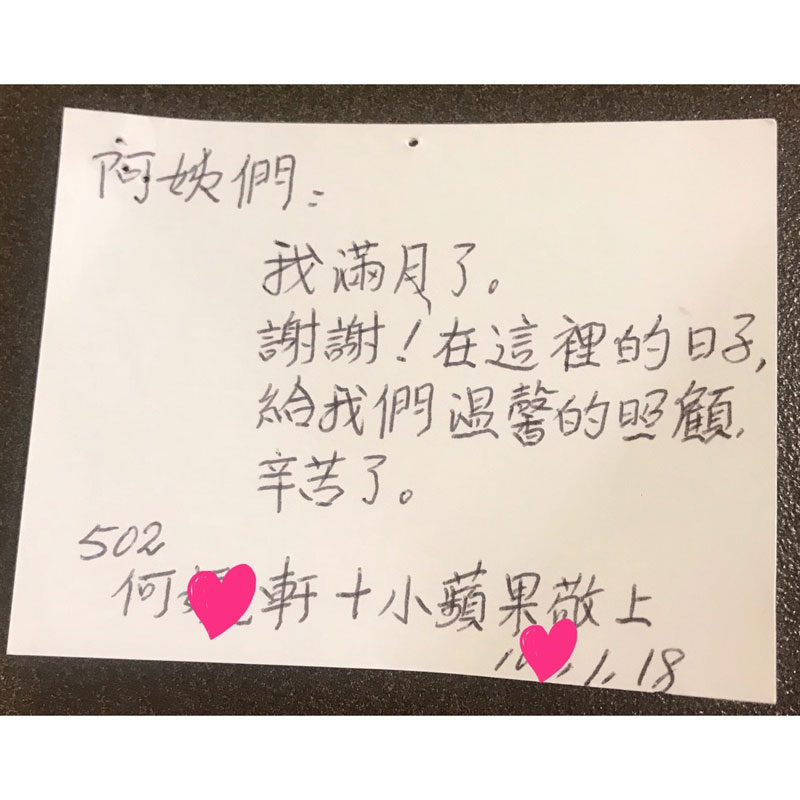 阿姨們:
我滿月了。
謝謝!在這裡的日子,
給我們溫馨的照顧,
辛苦了。
502
何 軒+小蘋果敬上
1.18